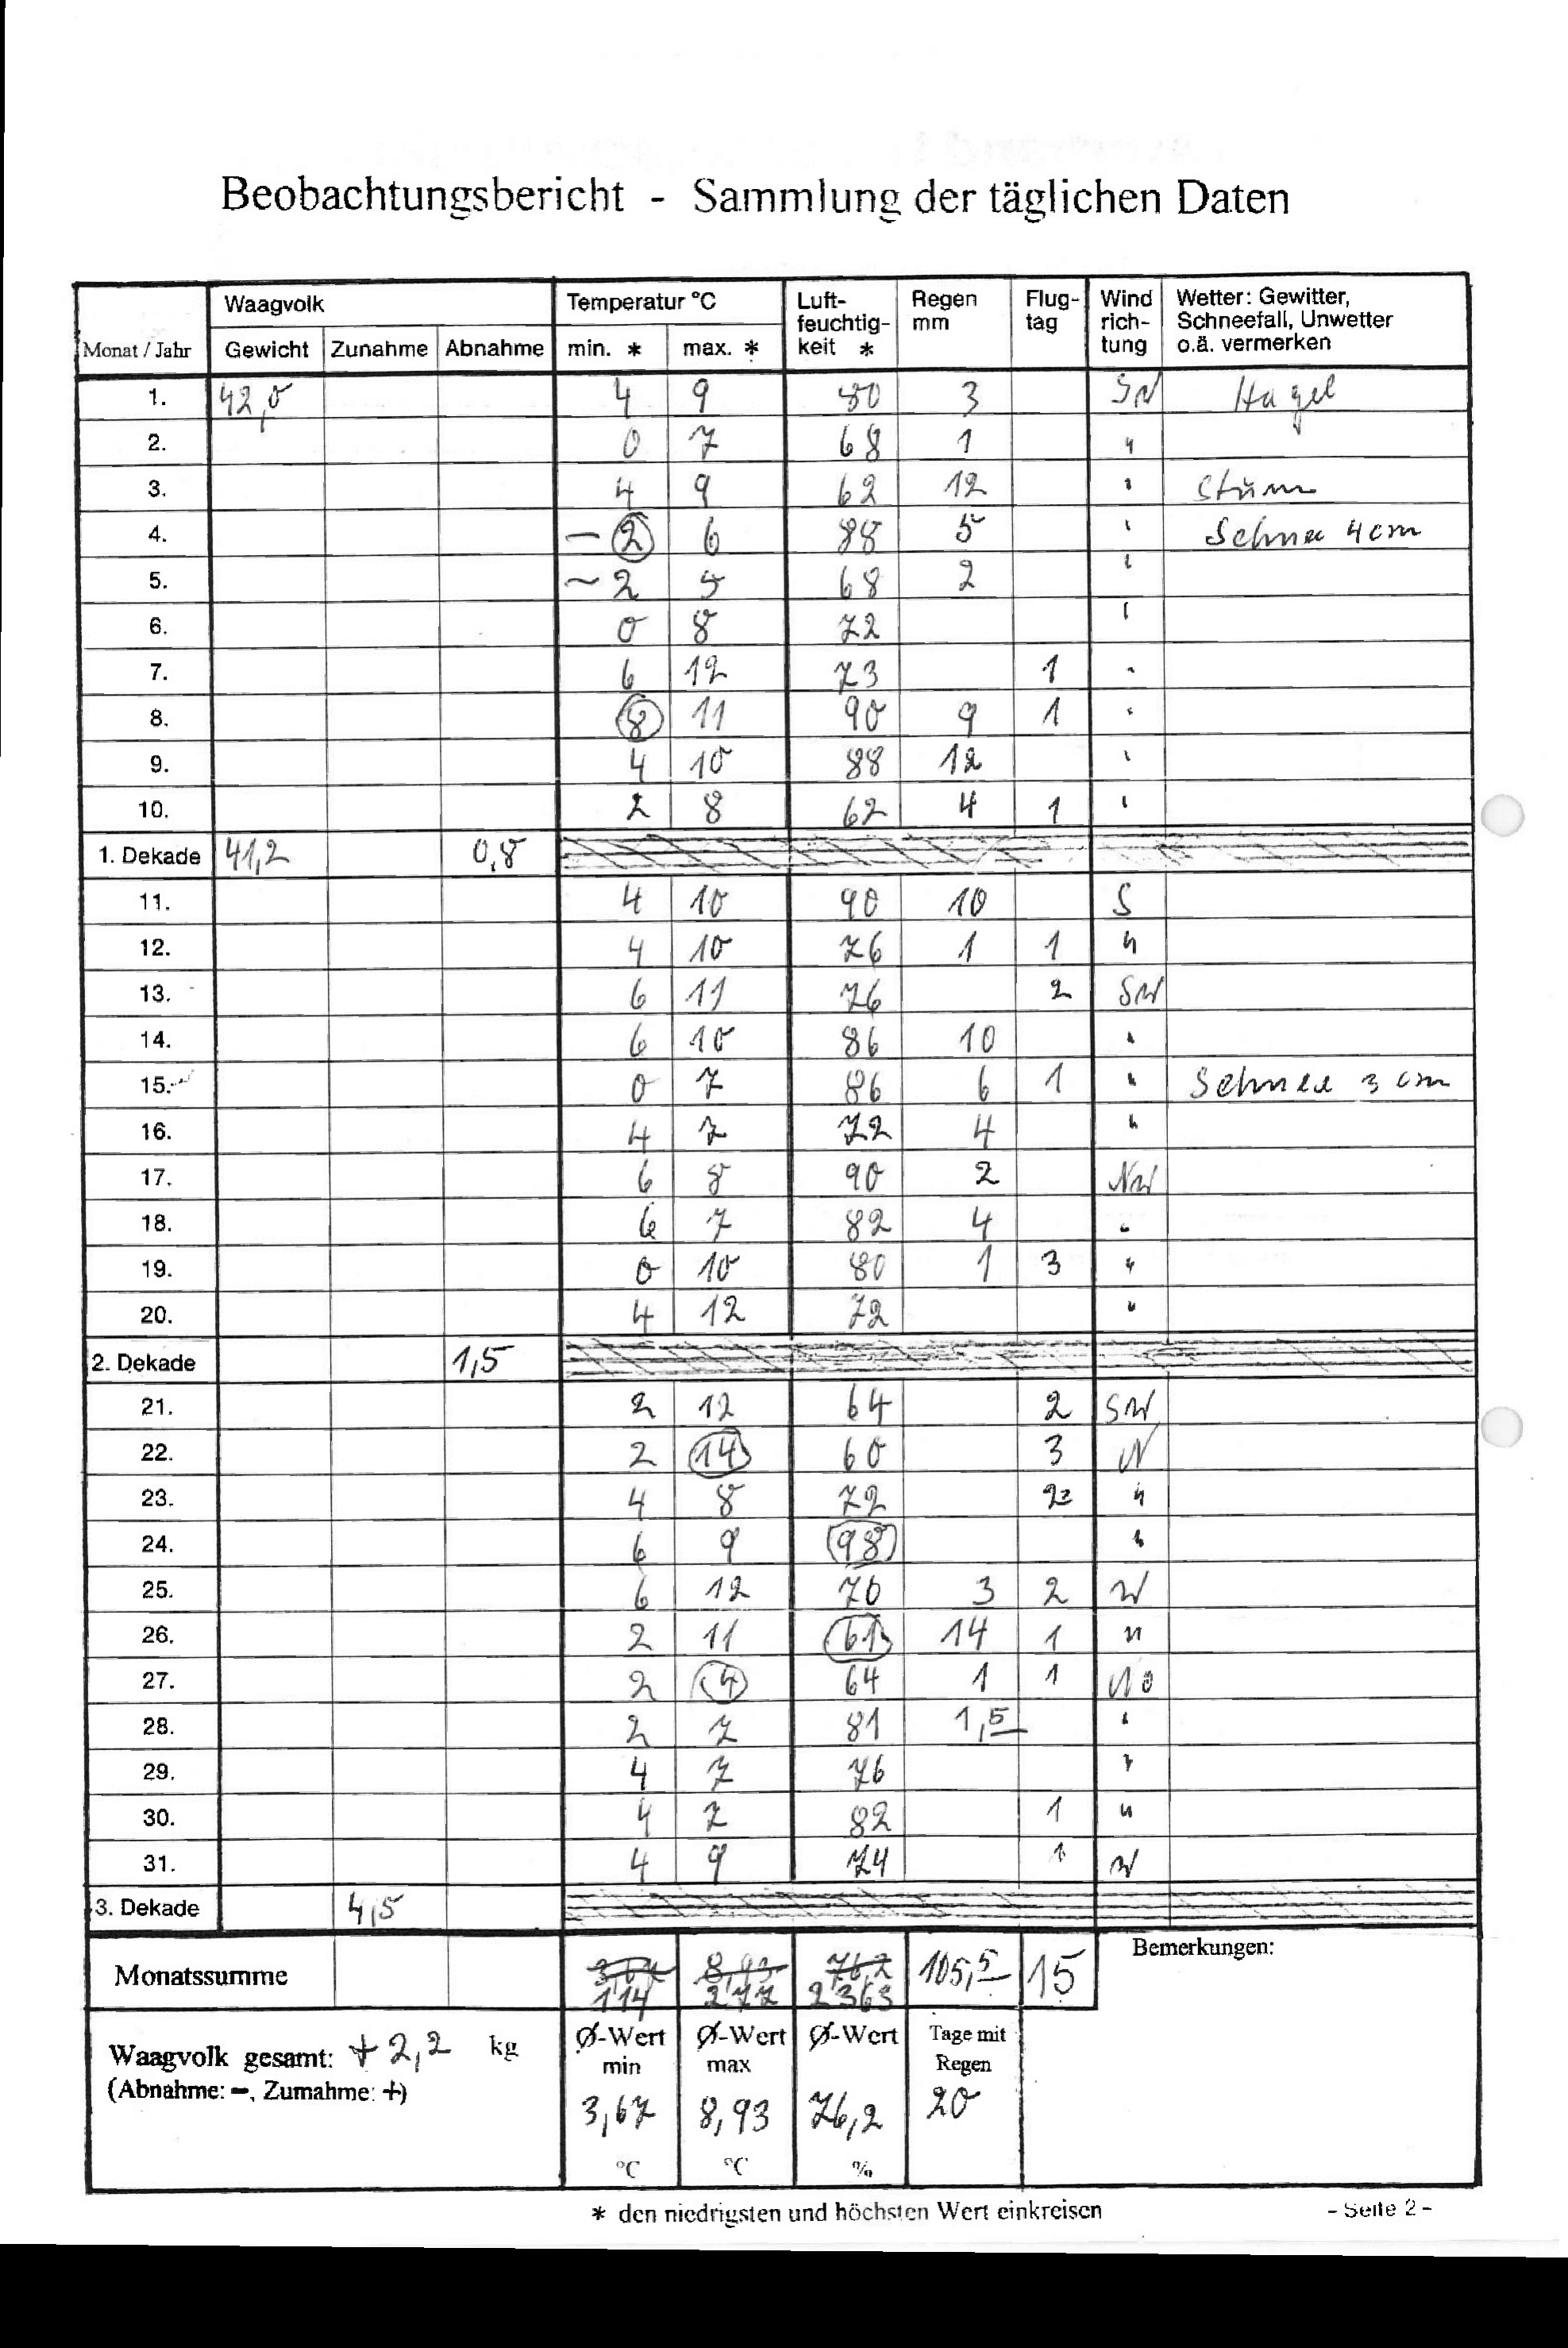 Beobachtungsbericht - Sammlung der täglichen Daten
Monat / Jahr Waagvolk Temperatur °C Luft-feuchtig-keit * Regen mm Flug-tag Wind rich-tung Wetter: Gewitter, Schneefall, Unwetter o.ä. vermerken
Gewicht Zunahme Abnahme min. * max. *
1. 42,0 4 9 80 3 SW Hagel
2. 0 7 68 1 "
3. 4 9 62 12 " Sturm
4. -2 6 88 5 " Schnee 4 cm
5. -2 5 68 2 "
6. 0 8 72 "
7. 6 12 73 1 "
8. 8 11 90 9 1 "
9. 4 10 88 12 "
10. 2 8 62 4 1 "
1. Dekade 41,2 0,8
11. 4 10 90 10 S
12. 4 10 76 1 1 "
13. 6 11 76 2 SW
14. 6 10 86 10 "
15. 0 7 86 6 1 " Schnee 3 cm
16. 4 7 72 4 "
17. 6 8 90 2 NW
18. 6 7 82 4 "
19. 0 10 80 1 3 "
20. 4 12 72 "
2. Dekade 1,5
21. 2 12 64 2 SW
22. 2 14 60 3 N
23. 4 8 72 2 "
24. 6 9 98 "
25. 6 12 70 3 2 W
26. 2 11 61 14 1 "
27. 2 4 64 1 1 NO
28. 2 7 81 1,5 "
29. 4 7 76 "
30. 4 7 82 1 "
31. 4 9 74 1 W
3. Dekade 4,5
Monatssumme 3,67 8,93 76,2 105,5 15 Bemerkungen:
114 277 2363
Waagvolk gesamt: +2,2 kg Ø-Wert min Ø-Wert max Ø-Wert Tage mit Regen
(Abnahme: -, Zumahme: +) 3,67 8,93 76,2 20
°C °C %
* den niedrigsten und höchsten Wert einkreisen
- Seite 2 -